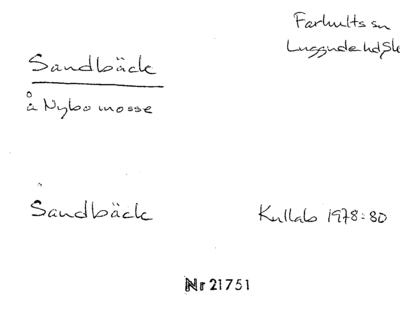 Farhults sn
Luggude hd, Sk
Sandbäck
å Nybo mosse
Sandbäck
Kullab 1978:80
Nr 21751